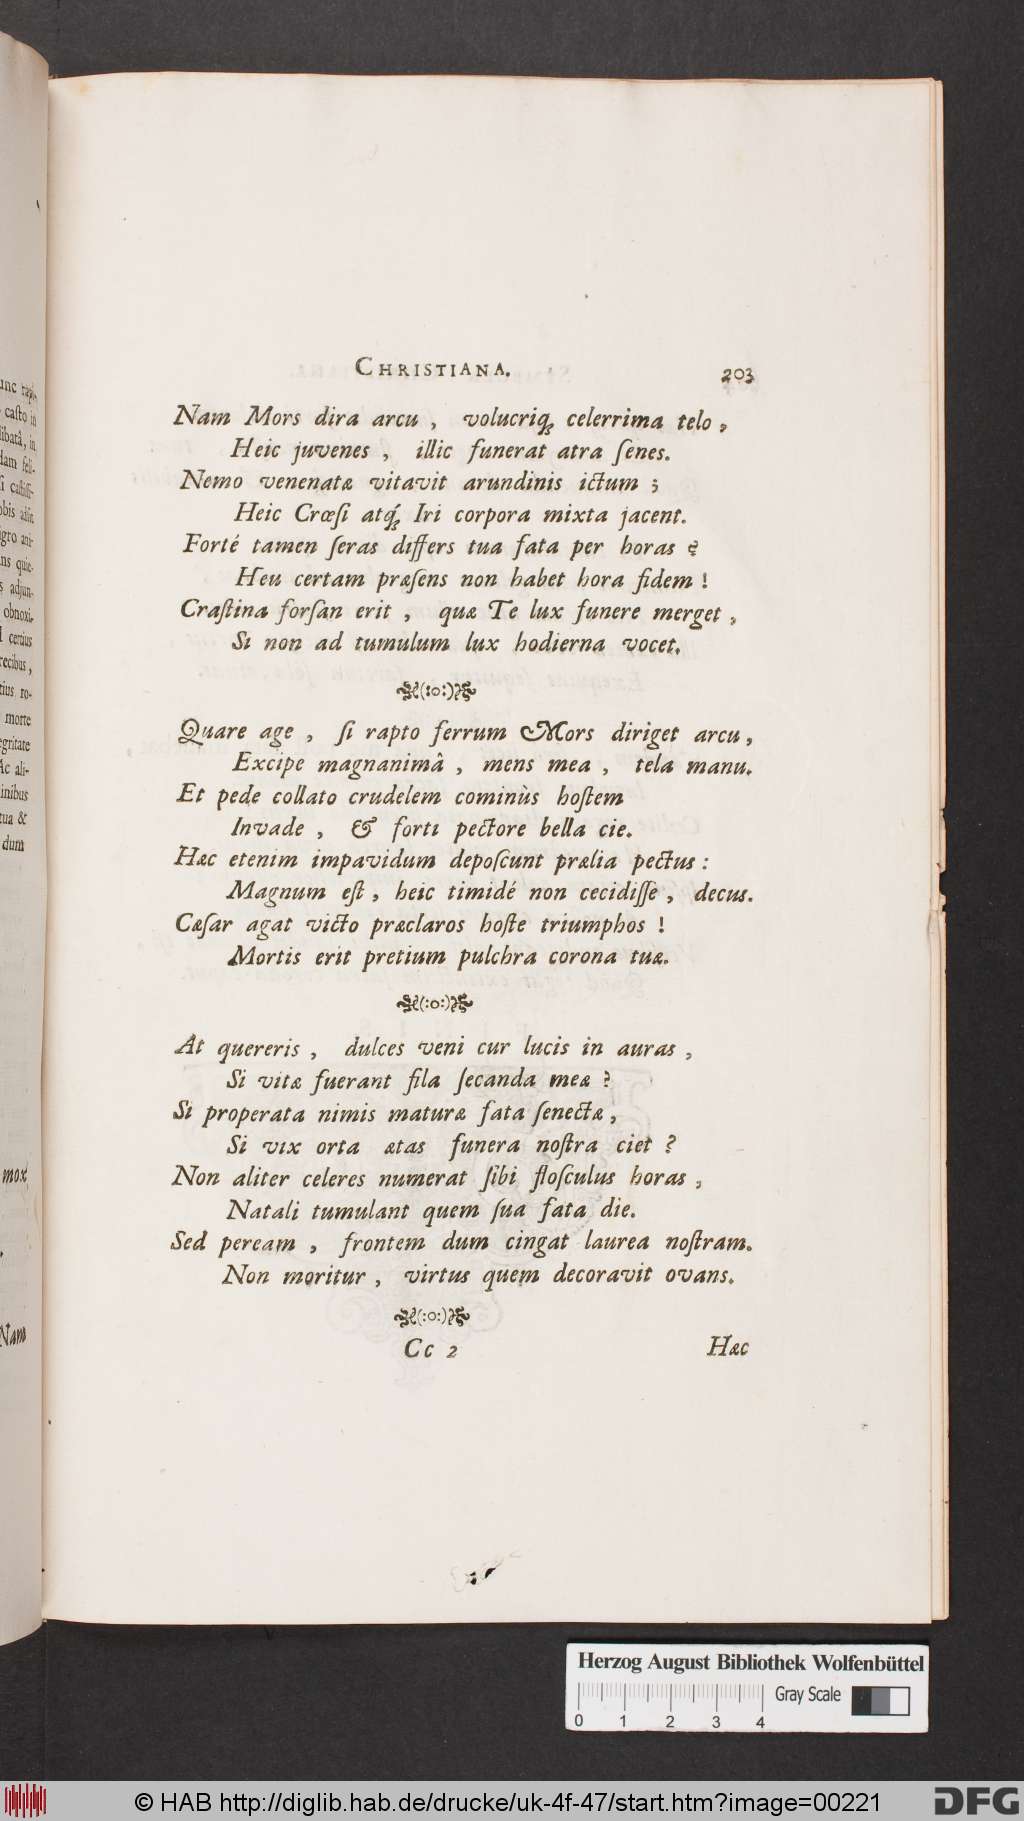 unc tapi-
casto in
libatâ, in
dam feli-
obis adsit
igro ani-
ns quie-
s adjun-
obnoxi-
certius
recibus,
tius ro-
morte
egritate
Ac ali-
inibus
tua &
dum
mox
Nam
CHRISTIANA. 203
Nam Mors dira arcu, volucriq́; celerrima telo,
Heic juvenes, illic funerat atra ſenes.
Nemo venenatæ vitavit arundinis ictum;
Heic Crœſi atq́; Iri corpora mixta jacent.
Forté tamen ſeras differs tua fata per horas?
Heu certam præſens non habet hora fidem!
Craſtina forſan erit, quæ Te lux funere merget,
Si non ad tumulum lux hodierna vocet.
(:o:)
Quare age, ſi rapto ferrum Mors diriget arcu,
Excipe magnanimâ, mens mea, tela manu.
Et pede collato crudelem cominùs hoſtem
Invade, & forti pectore bella cie.
Hæc etenim impavidum depoſcunt prælia pectus:
Magnum eſt, heic timidé non cecidiſſe, decus.
Cæſar agat victo præclaros hoſte triumphos!
Mortis erit pretium pulchra corona tuæ.
(:o:)
At quereris, dulces veni cur lucis in auras,
Si vitæ fuerant fila ſecanda meæ?
Si properata nimis maturæ fata ſenectæ,
Si vix orta ætas funera noſtra ciet?
Non aliter celeres numerat ſibi floſculus horas,
Natali tumulant quem ſua fata die.
Sed peream, frontem dum cingat laurea noſtram.
Non moritur, virtus quem decoravit ovans.
(:o:)
Cc 2 Hæc
Herzog August Bibliothek Wolfenbüttel
Gray Scale
0 1 2 3 4
© HAB http://diglib.hab.de/drucke/uk-4f-47/start.htm?image=00221
DFG